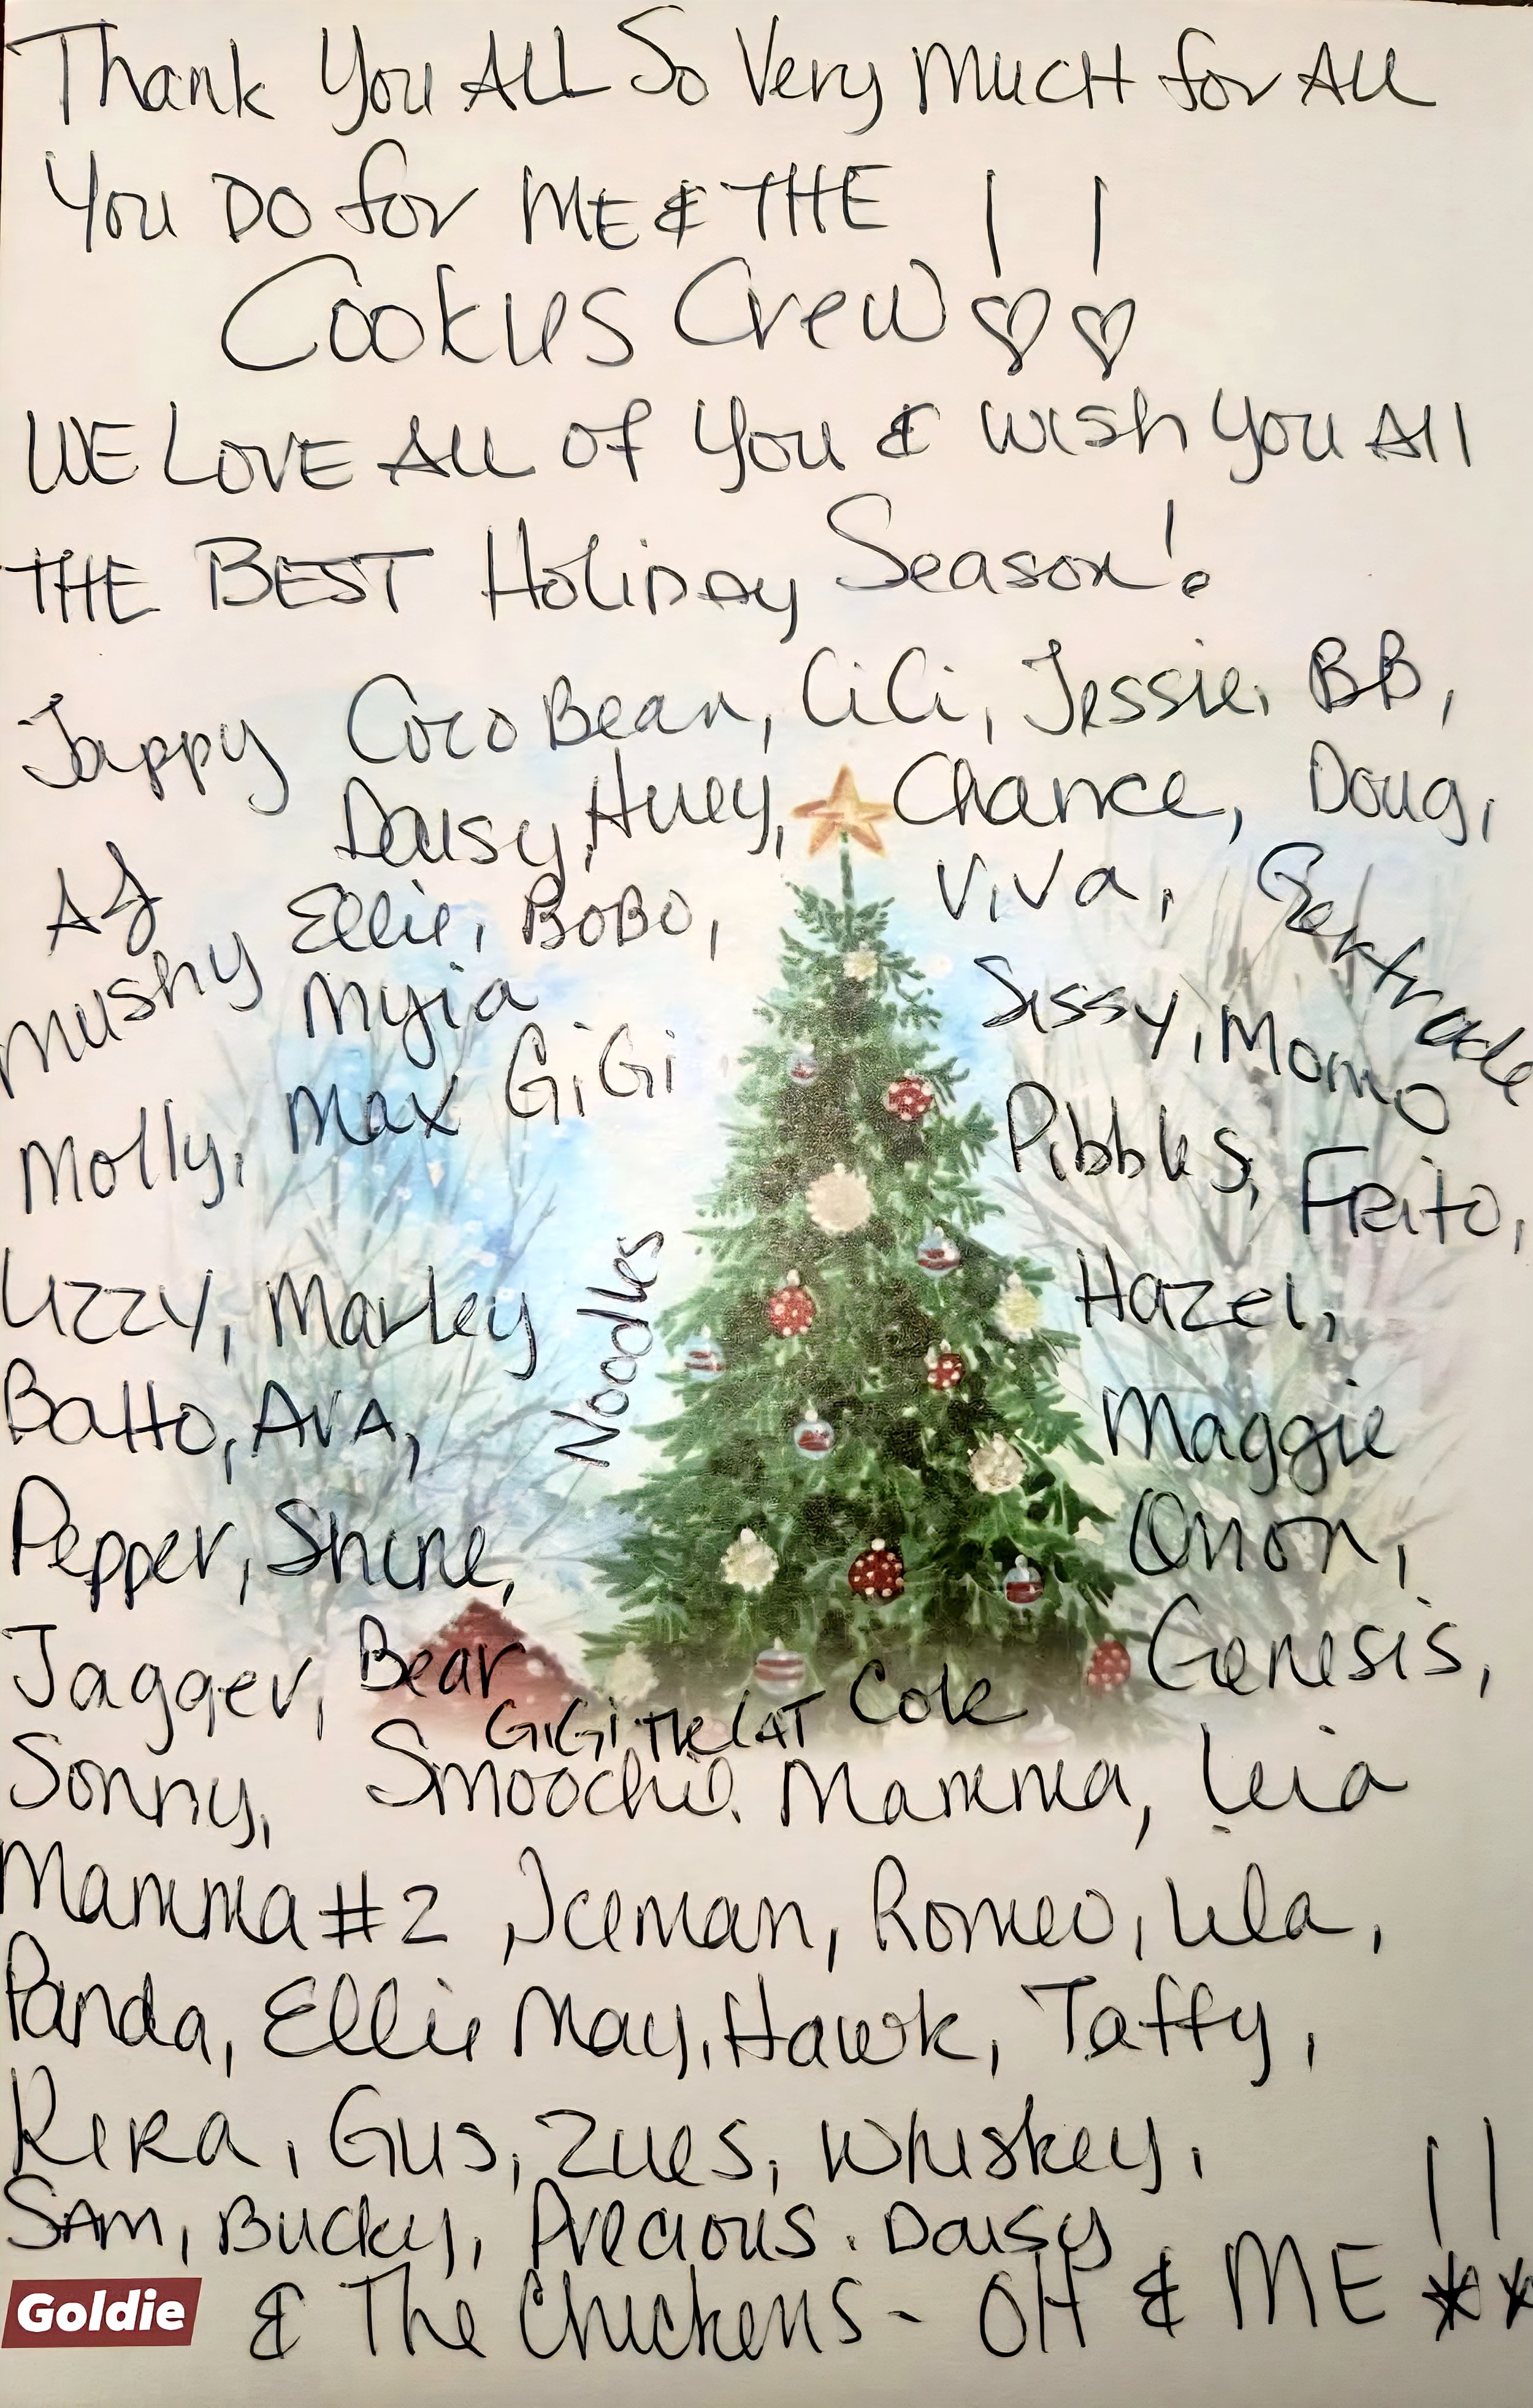 Thank You ALL So Very Much for All
You Do for ME & THE
Cookies Crew !!
WE LOVE All of You & wish you All
THE BEST Holiday Season!
Jappy Coco Bean, CiCi, Jessie, BB,
Daisy, Huey, Chance, Doug,
AJ Ellie, BoBo, Viva, Gertrude
Mushy Myia Sissy, Momo
Molly, Max GiGi Pibbles, Frito,
Lizzy, Marley Noodles Hazel,
Batto, AvA, Maggie
Pepper, Shine, Onion,
Jagger, Bear Genesis,
GiGi The CAT Cole
Sonny, Smoochie. Mamma, Leia
Mamma #2, Iceman, Romeo, Lila,
Panda, Ellie May, Hawk, Taffy,
Kera, Gus, Zues, Whiskey,
SAm, Bucky, Precious. Daisy
Goldie & The Chickens - OH & ME !!